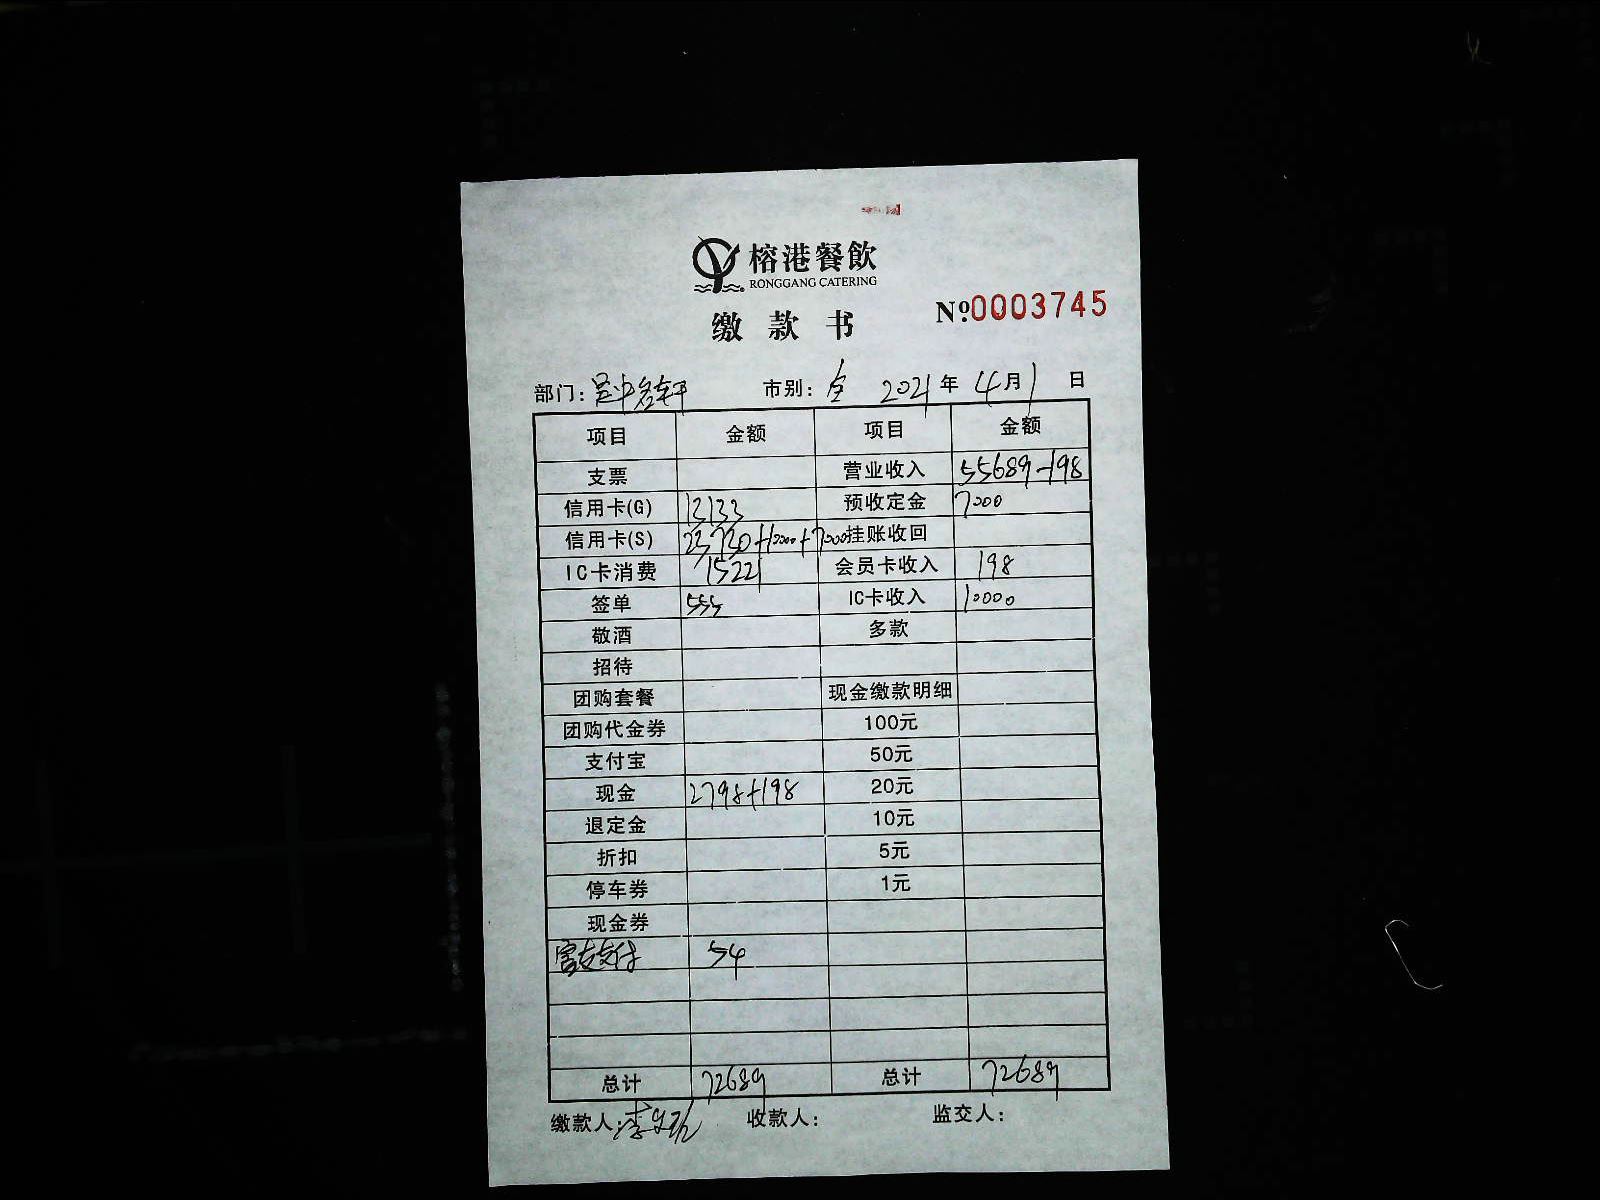 榕港餐飲
RONGGANG CATERING
缴款书 №0003745
部门: 吴中名轩 市别: 全 2021年4月1日
项目 金额 项目 金额
支票 营业收入 55689-198
信用卡(G) 13133 预收定金 7000
信用卡(S) 23730+10000+7000 挂账收回
IC卡消费 15221 会员卡收入 198
签单 555 IC卡收入 10000
敬酒 多款
招待
团购套餐 现金缴款明细
团购代金券 100元
支付宝 50元
现金 2798+198 20元
退定金 10元
折扣 5元
停车券 1元
现金券
支付 54
总计 72689 总计 72689
缴款人: 李 收款人: 监交人: